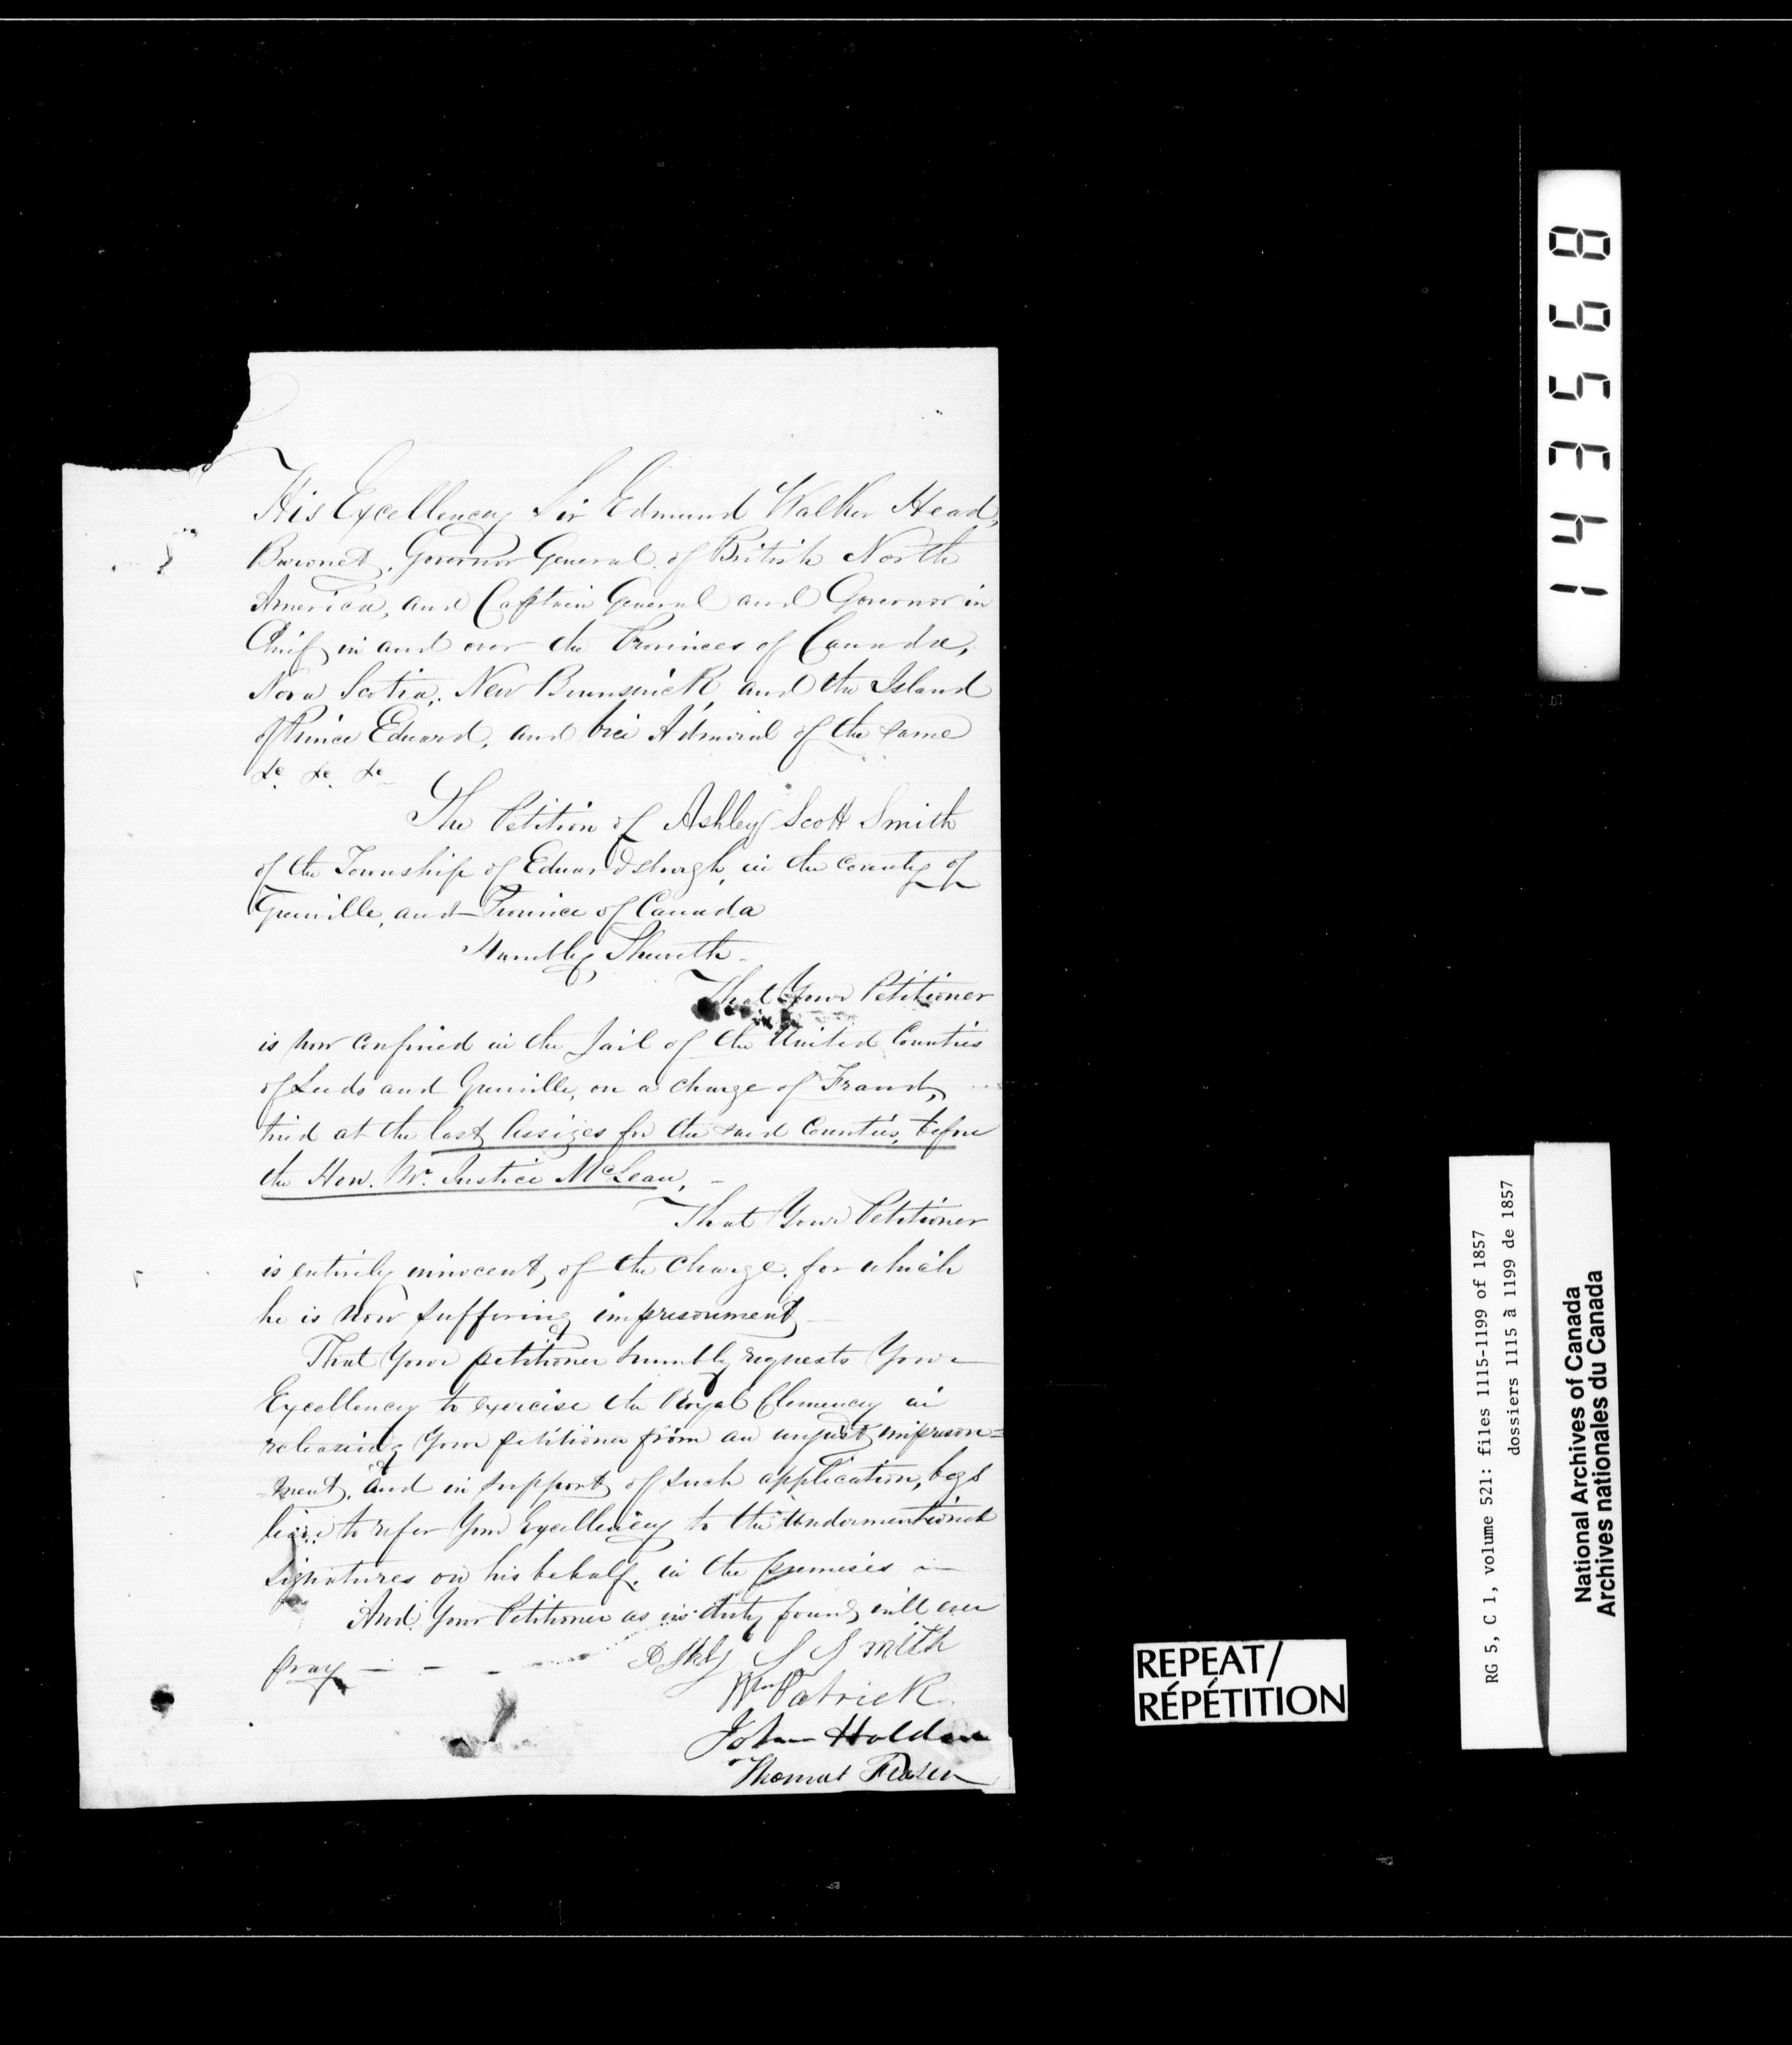 His Excellency Sir Edmund Walker Head,
Baronet, Governor General of British North
America, and Captain General and Governor in
Chief in and over the Provinces of Canada,
Nova Scotia, New Brunswick, and the Island
of Prince Edward, and Vice Admiral of the same
&c. &c. &c
The Petition of Ashley Scott Smith
of the Township of Edwardsburgh, in the County of
Grenville, and Province of Canada
Humbly Sheweth.
That Your Petitioner
is now confined in the Jail of the United Counties
of Leeds and Grenville, on a charge of Fraud,
tried at the last Assizes for the said Counties, before
the Hon. Mr. Justice McLean, -
That Your Petitioner
is entirely innocent, of the charge, for which
he is now suffering imprisonment
That Your petitioner humbly requests Your
Excellency to exercise the Royal Clemency in
releasing Your petitioner from an unjust imprison=
=ment, and in support of such application, begs
leave to refer Your Excellency to the Undermentioned
signatures on his behalf, in the premises
And Your Petitioner as in duty found will ever
pray - - - Ashly S Smith
Wm Patrick
John Holden
Thomas Fraser
14 3 5 6 8
RG 5, C 1, volume 521: files 1115-1199 of 1857
dossiers 1115 à 1199 de 1857
National Archives of Canada
Archives nationales du Canada
REPEAT/
RÉPÉTITION